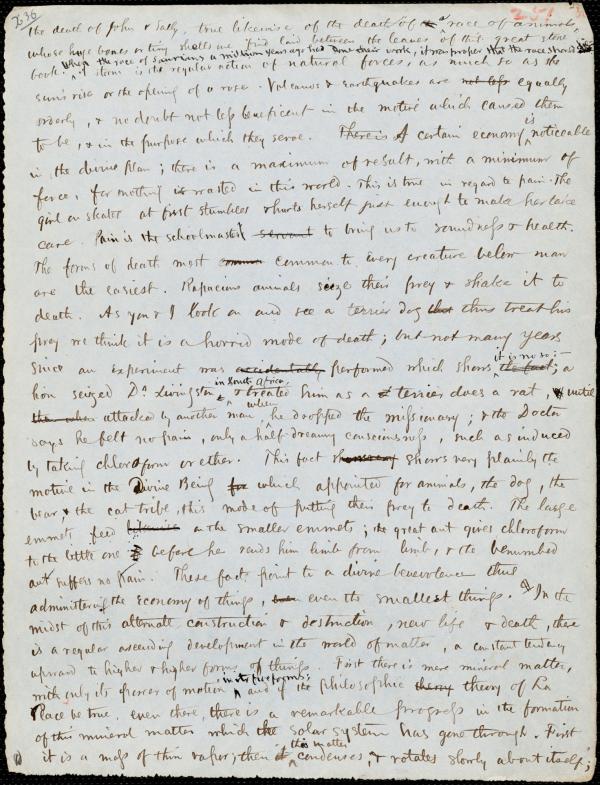 236
251
the death of John & Sally, true likewise of the death of a race of animals,
whose huge bones or tiny shells we find laid between the leaves of this great stone
When the race of saurians a million years ago had done their work, it was proper that the race should
book. A storm is the regular action of natural forces, as much so as the
sun's rise or the opening of a rose. Volcanos & earthquakes are not less equally
orderly, & no doubt not less beneficent in the motive which caused them
to be, & in the purpose which they serve. There is A certain economy is noticeable
in the divine plan; there is a maximum of result, with a minimum of
force, for nothing is wasted in this world. This is true in regard to pain. The
girl on skates at first stumbles & hurts herself just enough to make her take
care. Pain is the schoolmaster servant to bring us to soundness & health.
The forms of death most common to every creature below man
are the easiest. Rapacious animals seize their prey & shake it to
death. As you & I look on and see a terrier dog that thus treat his
prey we think it is a horrid mode of death; but not many years
it is not so:—
since an experiment was accidentally performed which shows the fact; a
in South Africa,
lion seized Dr. Livingston & treated him as a terrier does a rat, & until
when
attacked by another man he dropped the missionary; & the Doctor
says he felt no pain, only a half-dreamy consciousness, such as induced
by taking chloroform or ether. This fact shows very plainly the
motive in the Divine Being for which appointed for animals, the dog, the
bear, & the cat tribe, this mode of putting their prey to death. The large
emmets feed on the smaller emmets; the great ant gives chloroform
to the little one before he rends him limb from limb, & the benumbed
ant suffers no pain. These facts point to a divine benevolence thus
administering the economy of things, even the smallest things. In the
midst of this alternate construction & destruction, new life & death, there
is a regular ascending development in the world of matter, a constant tendency
upward to higher & higher forms of things. First there is mere mineral matter,
in its five forms;
with only its power of motion and if the philosophic theory theory of La
Place be true, even there, there is a remarkable progress in the formation
of this mineral matter which the solar system has gone through. First
this matter
it is a mass of thin vapor; then it condenses, & rotates slowly about itself;